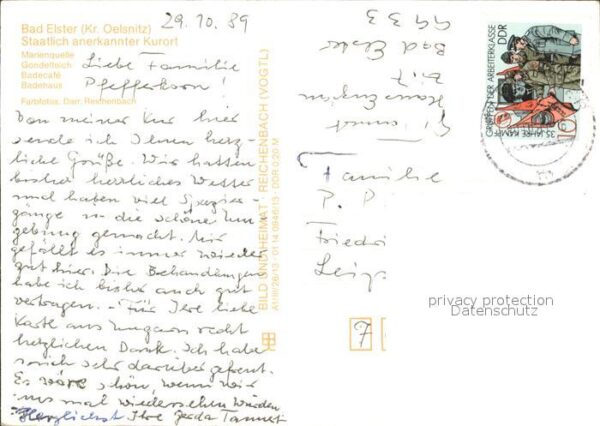 29.10.89
Bad Elster (Kr. Oelsnitz)
Staatlich anerkannter Kurort
Marienquelle
Gondelteich
Badecafé
Badehaus
Farbfotos: Darr, Reichenbach
Liebe Familie
Pfefferkorn!
Von meiner Kur hier
sende ich Ihnen herz-
liche Grüße. Wir hatten
bisher herrliches Wetter
und haben viel Spazier-
gänge in die schöne Um
gebung gemacht. Mir
gefällt es immer wieder
gut hier. Die Behandlungen
habe ich bisher auch gut
vertragen. - Für Ihre liebe
Karte aus Ungarn recht
herzlichen Dank. Ich habe
mich sehr darüber gefreut.
Es wäre schön, wenn wir
uns mal wiedersehen würden
Herzlichst Ihre Gerda Tannert
BILD UND HEIMAT · REICHENBACH (VOGTL)
A1/III/26/13 · 01 14 0946/13 · DDR 0,20 M
Haus
Bad Elster
9933
35 JAHRE KAMPF-
GRUPPEN DER ARBEITERKLASSE
DDR
10
Familie
P. P
Friedri
Leip
7
privacy protection
Datenschutz